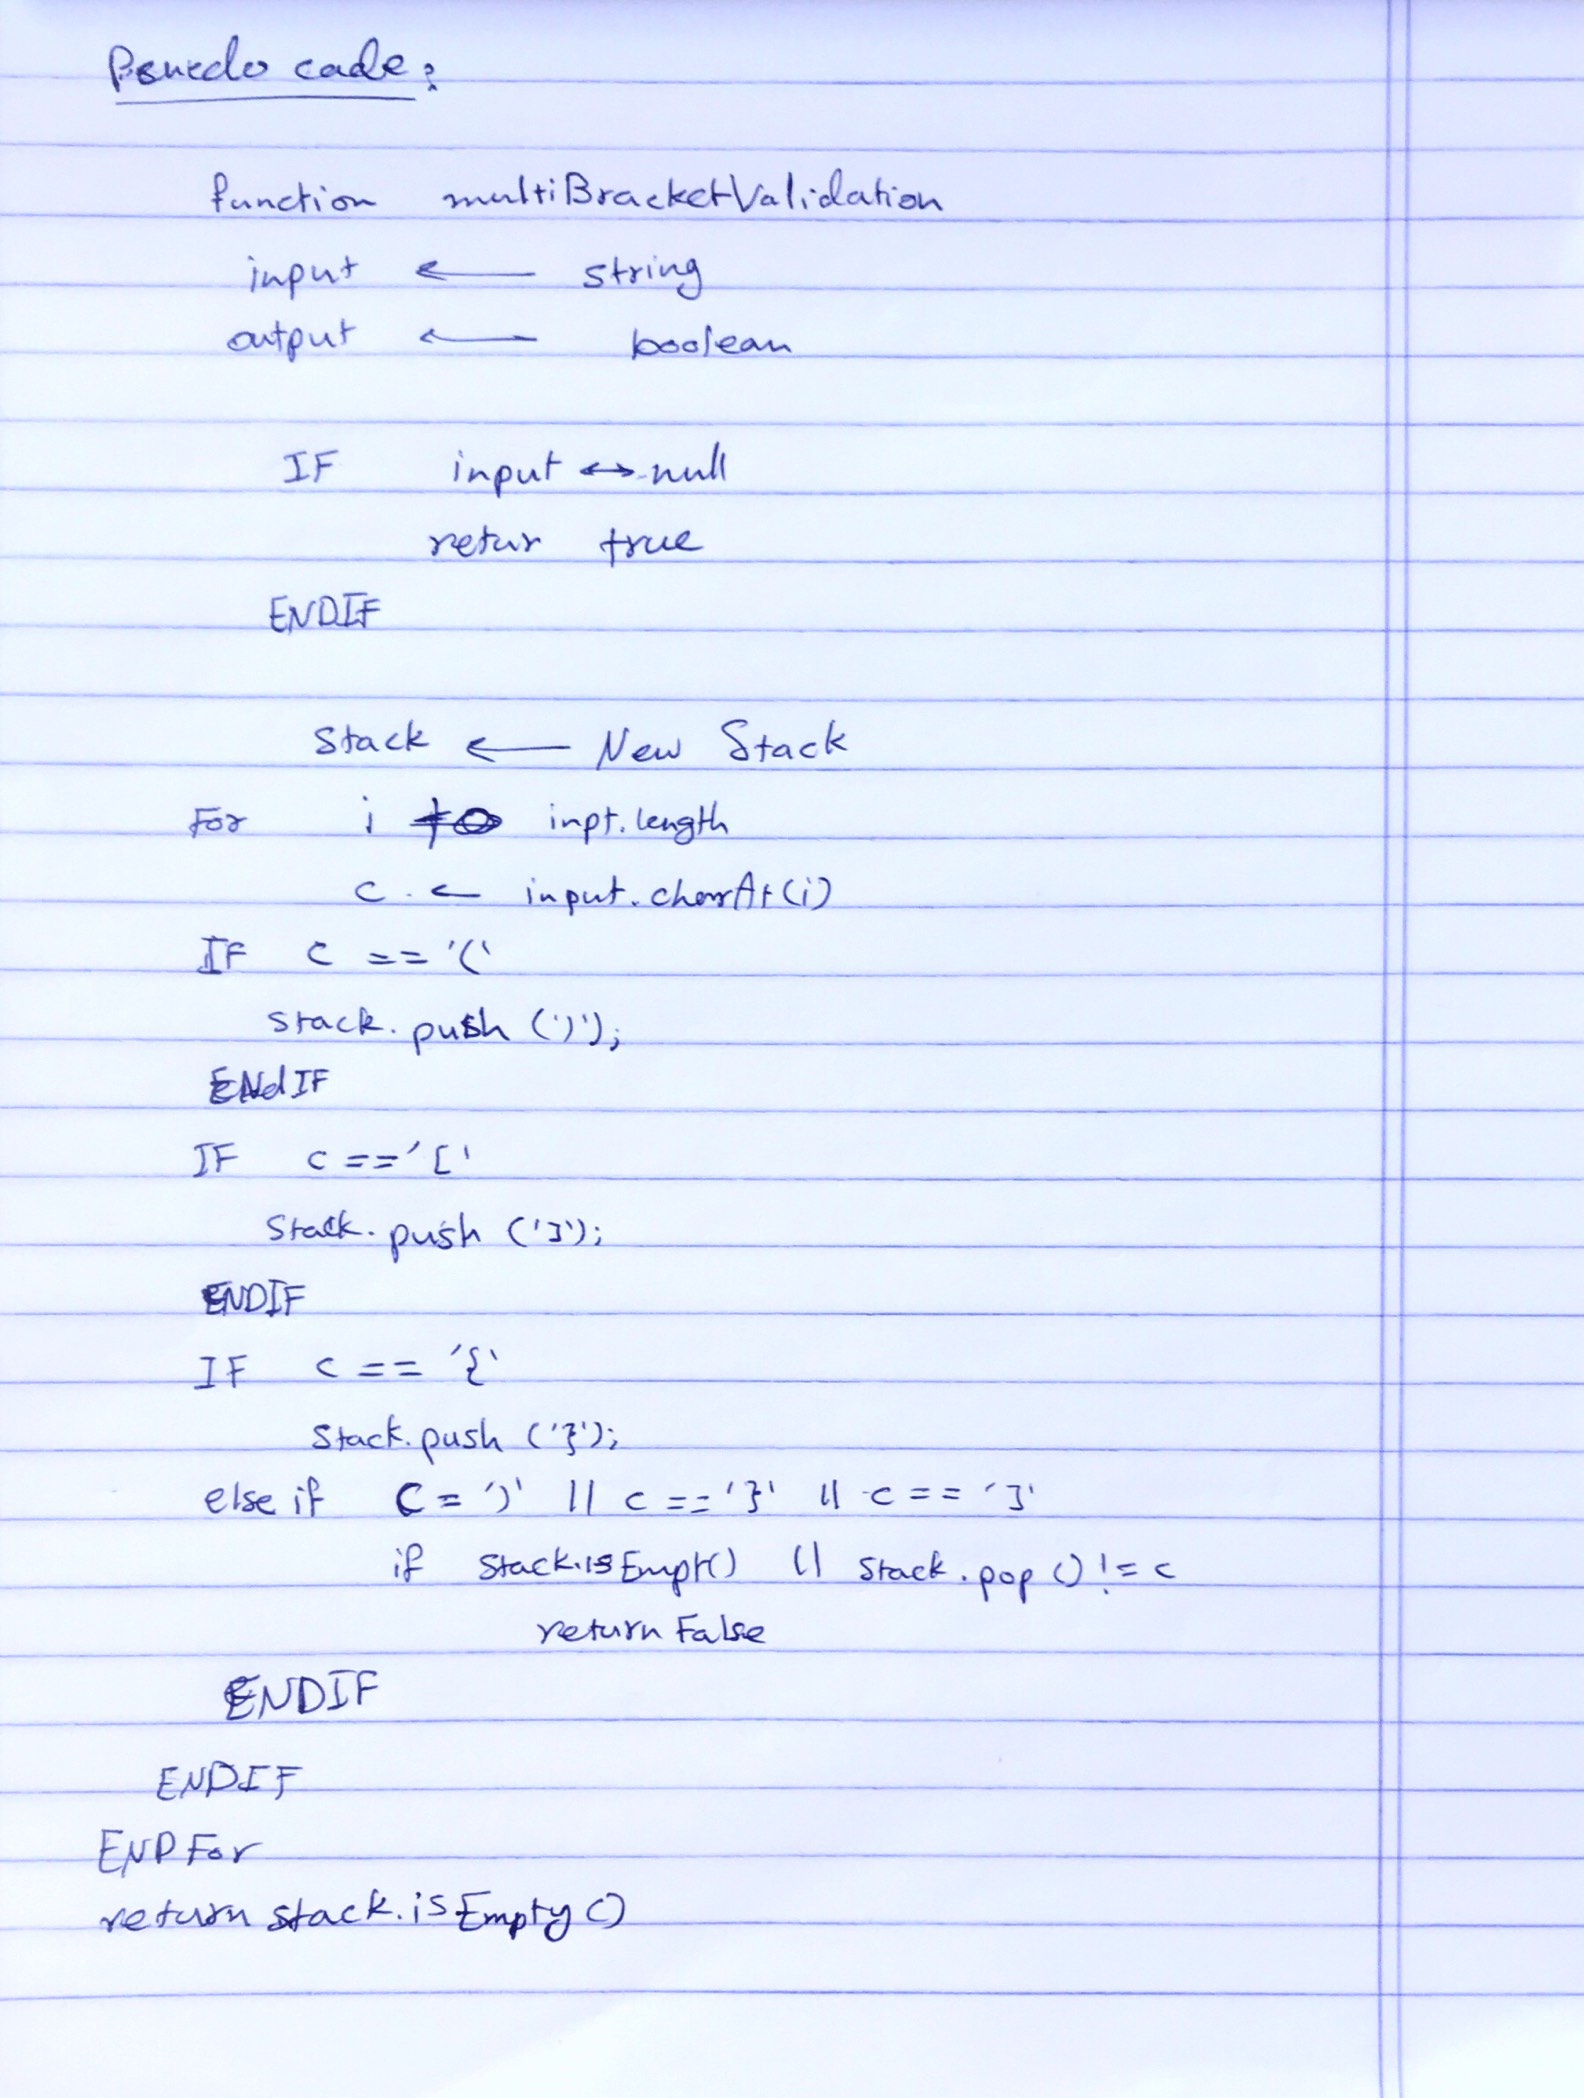 Psuedo code:
function multiBracketValidation
input ← string
output ← boolean
IF input ↔ null
retur true
ENDIF
Stack ← New Stack
For i to inpt.length
c ← input.charAt(i)
IF c == '('
stack.push (')');
ENdIF
IF c == '['
Stack.push (']');
ENDIF
IF c == '{'
Stack.push ('}');
else if C = ')' || c == '}' || c == ']'
if Stack.isEmpt() || Stack.pop() != c
return False
ENDIF
ENDIF
END For
return stack.isEmpty()